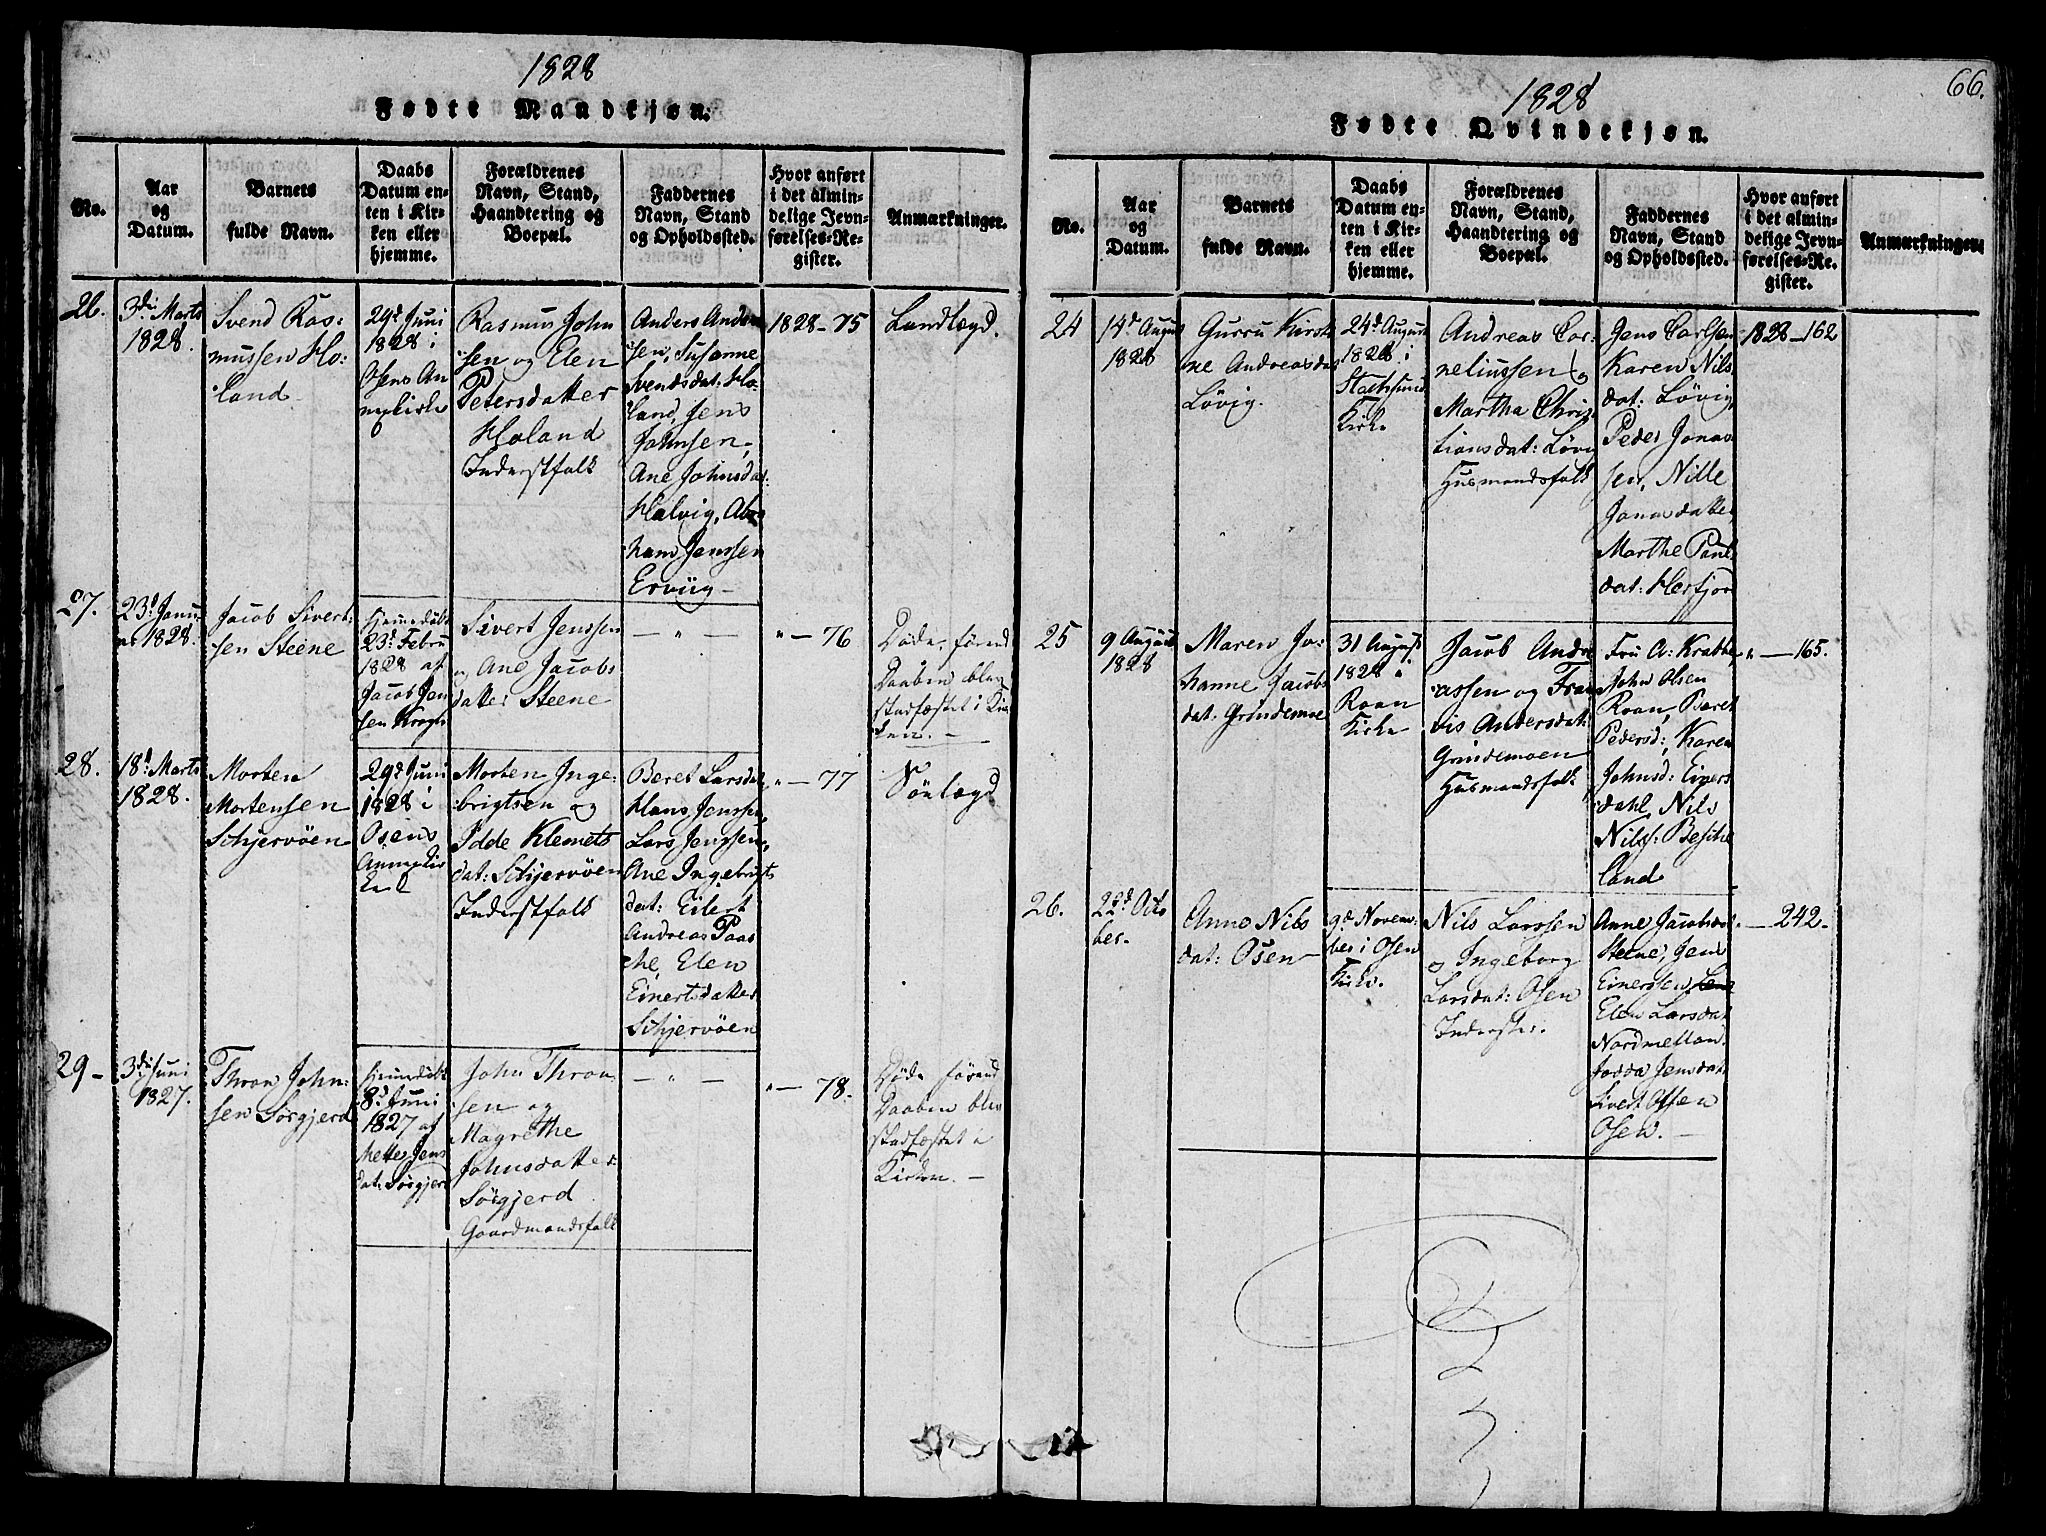 1828
Fødte Mandkjøn.
No.
Aar
og
Datum.
Barnets
fulde Navn.
Daabs
Datum en-
ten i Kir-
ken eller
hjemme.
Forældrenes
Navn, Stand,
Haandtering og
Boepæl.
Faddernes
Navn, Stand
og Opholdssted.
Hvor anført
i det almin-
delige Jevn-
førelses-Re-
gister.
Anmærkninger.
26.
3di Marts
1828.
Svend Ras:
mussen Ho:
land
29d Juni
1828 i
Osens An
nexkirke
Rasmus John
sen og Elen
Petersdatter
Holand
Inderstfolk
Anders Anders
sen, Susanne
Svendsdat: Ho:
land, Jens
Johnsen,
Ane Johnsdat:
Halvig, Abra
ham Jenssen
Erviig
1828-75
Landlægd.
27.
23d Janu
ar 1828.
Jacob Sivert:
sen Steene
Hjemmedøbt
23d Febru
1828 af
Jacob Jen
sen Krogh
Sivert Jenssen
og Ane Jacobs
datter Steene
— " —
" — 76
Døde, førend
Daaben blev
stadfæstet i Kir
ken. —
28.
18d Marts
1828.
Morten
Mortensen
Schjervöen
29d Juni
1828 i
Osens
Annexkir
ke
Morten Inge:
brigtsen og
Idde Klemets
dat: Schjervöen
Inderstfolk
Beret Larsdat,
Hans Jenssen,
Lars Jenssen,
Ane Ingebrigts
dat: Eilert
Andreas Paas
che, Elen
Einertsdatter
Schjervöen
" — 77
Sölægd
29 -
3di Juni
1827.
Thron John:
sen Sörgjerd
Hjemmedøbt
8d Juni
1827 af
Mette Jens
dat: Sörgjerd
John Thron
sen og
Magrethe
Johnsdatter
Sörgjerd
Gaardmandsfolk
— " —
" — 78.
Døde førend
Daaben blev
stadfæstet i
Kirken. —
66.
1828
Fødte Qvindekjøn.
No.
Aar
og
Datum.
Barnets
fulde Navn.
Daabs
Datum en-
ten i Kir-
ken eller
hjemme.
Forældrenes
Navn, Stand,
Haandtering og
Boepæl.
Faddernes
Navn, Stand
og Opholdssted.
Hvor anført
i det almin-
delige Jevn-
førelses-Re-
gister.
Anmærkninger.
24
14d August
1828
Gurru Kirsti
ne Andreasdat
Lövig.
24d August
1828 i
Stoksund
Kirke
Andreas Cor:
neliussen og
Martha Chris
tiansdat: Lövig
Husmandsfolk
Jens Carlsen
Karen Nils
dat: Lövig,
Peder Jonas
sen, Nille
Jonasdatter,
Marthe Pauls
dat: Herfjord
1828-162
25
9 August
1828
Maren Jo:
hanne Jacobs
dat: Grindemoe
31 August
1828 i
Roan
Kirke
Jacob Andre
assen og Fran
cis Andersdat:
Grindemoen
Husmandsfolk
Fru A: Krabbe,
John Olsen
Roan, Beret
Pedersd:, Karen
Johnsd: Eigers
dahl, Nils
Nilss: Besche
land
" — 165.
26.
22d Octo
ber.
Anne Nils
dat: Osen
9d Novem:
ber i Osen
Kirke.
Nils Larssen
og Ingeborg
Larsdat: Osen
Inderster.
Anne Jacobsdat
Steene, Jens
Einerssen
Elen Larsdat
Nordmelland
Jensdat
Sivert Olsen
Osen. —
" — 242.